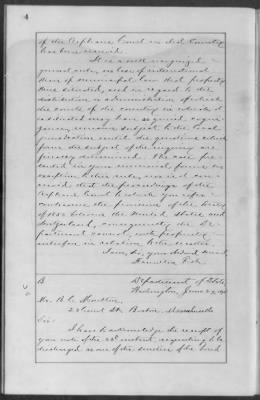 4
of the Orphans Court in that Country
has been received.
It is a well recognized
jurisdiction, no law of international
than of municipal law that property
there situated, and in regard to the
distribution or administration of which
the courts of the country in which it
is situated may have acquired cogni-
zance, remains subject to the local
jurisdiction until the questions which
form the subject of the inquiry are
finally determined. The case pre-
sented in your communication forms no
exception to the rule, nor is it con-
ceived that the proceedings of the
Orphans Court to which you refer
contravene the provisions of the treaty
of 1850 between the United States and
Switzerland, consequently the De-
partment cannot, with propriety
interfere in relation to the matter.
I am, Sir, your obedient servant,
Hamilton Fish.
B
Department of State
Washington, June 29,
Mr. B. C. Moulton,
28 Court St. Boston, Massachusetts
Sir:
I have to acknowledge the receipt of
your note of the 23d instant, requesting to be
discharged as one of the sureties of the bond